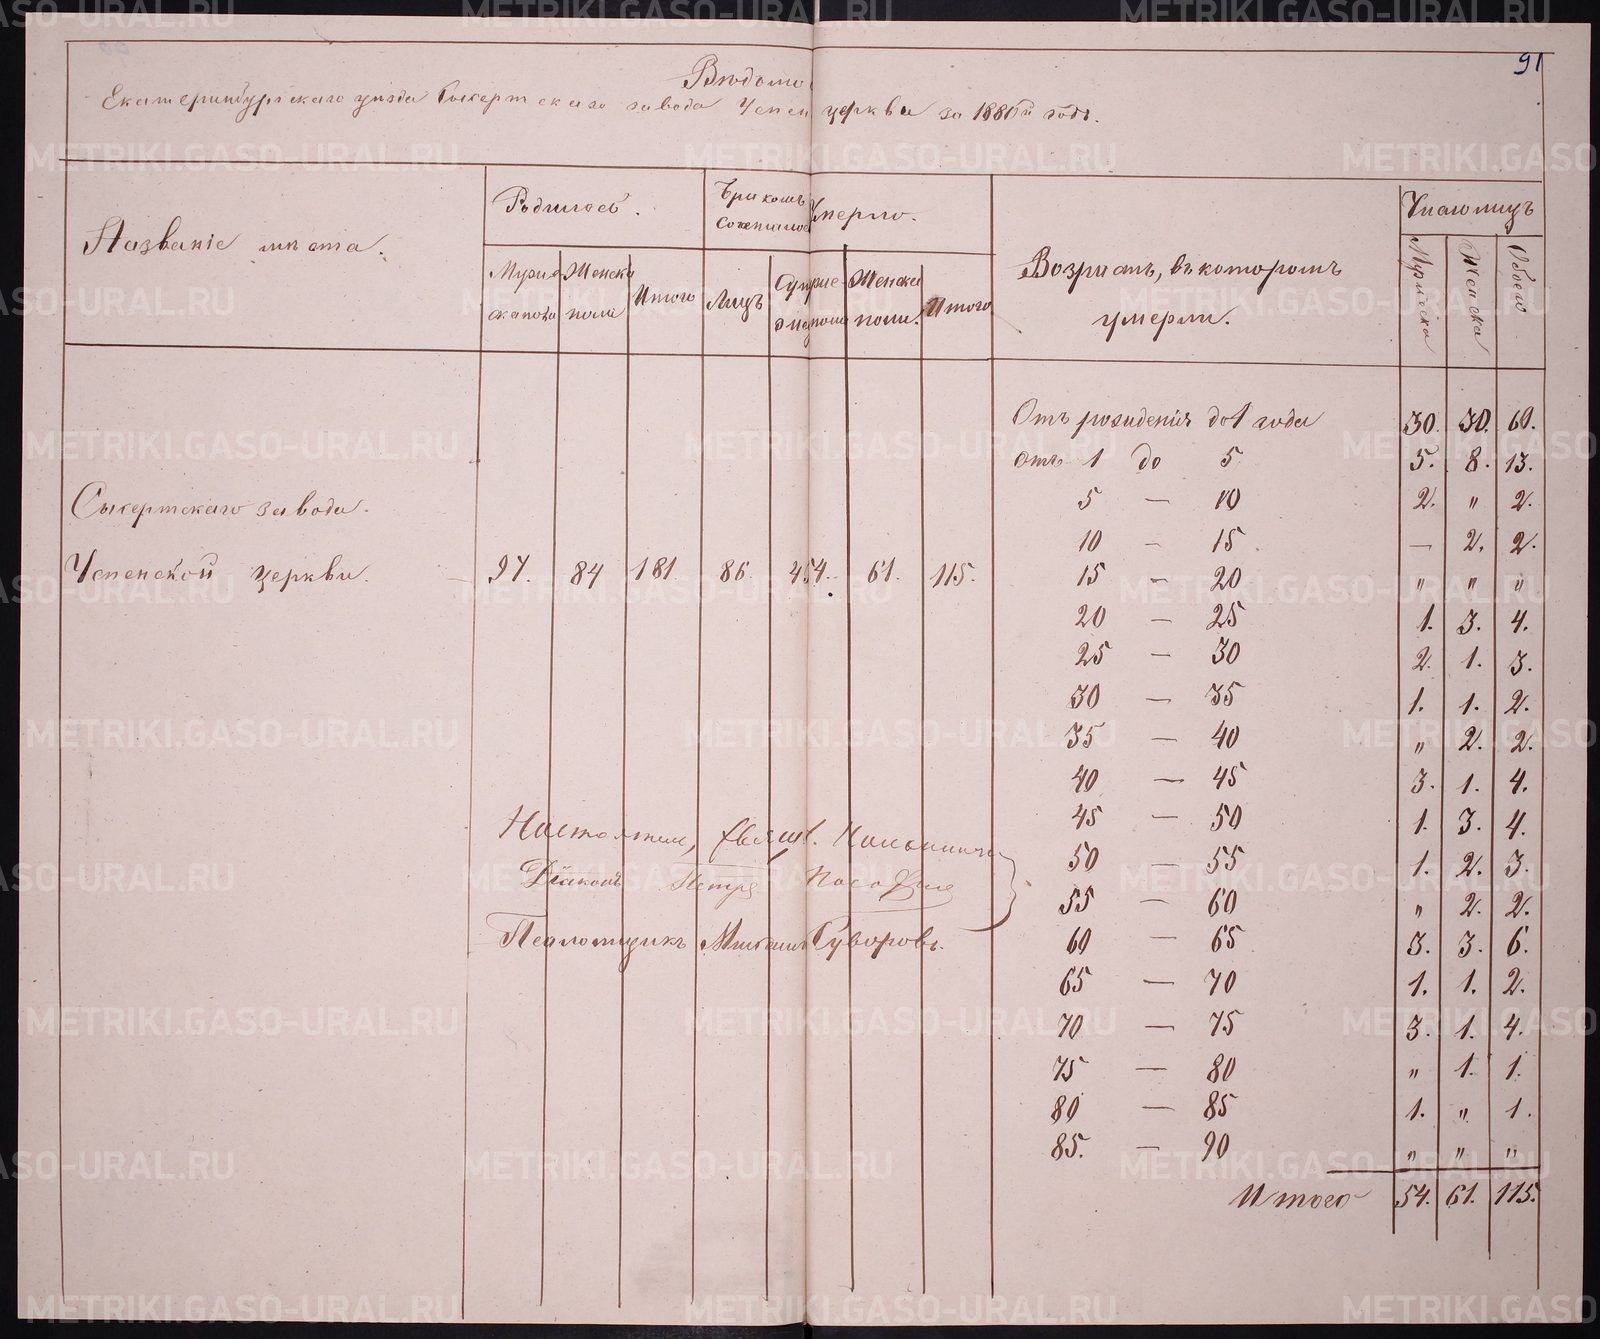 91
Вѣдомо
Екатеринбургскаго уѣзда Сысертскаго завода Успен церкви за 188 годъ.
Названіе мѣста.
Родилось.
Бракомъ
Умерло.
Мужс Женска Итого
скаго пола
Лицъ
Мужс Женска Итого
пола.
Возрастъ, въ которомъ
умерли.
Число лицъ
Мужска Женска Обоего
Сысертскаго завода.
Успенской церкви. 97. 84 181 86. 54. 61. 115.
Отъ рожденія до 1 года 30. 30. 60.
отъ 1 до 5 5. 8. 13.
5 — 10 2. " 2.
10 — 15 — 2. 2.
15 — 20 " " "
20 — 25 1. 3. 4.
25 — 30 2. 1. 3.
30 — 35 1. 1. 2.
35 — 40 " 2. 2.
40 — 45 3. 1. 4.
45 — 50 1. 3. 4.
50 — 55 1. 2. 3.
55 — 60 " 2. 2.
60 — 65 3. 3. 6.
65 — 70 1. 1. 2.
70 — 75 3. 1. 4.
75 — 80 " 1. 1.
80 — 85 1. " 1.
85. — 90 " " "
Итого 54. 61. 115.
Настоятель, Священ.
Діаконъ Петръ
Псаломщикъ Михаилъ Суворовъ.
METRIKI.GASO-URAL.RU